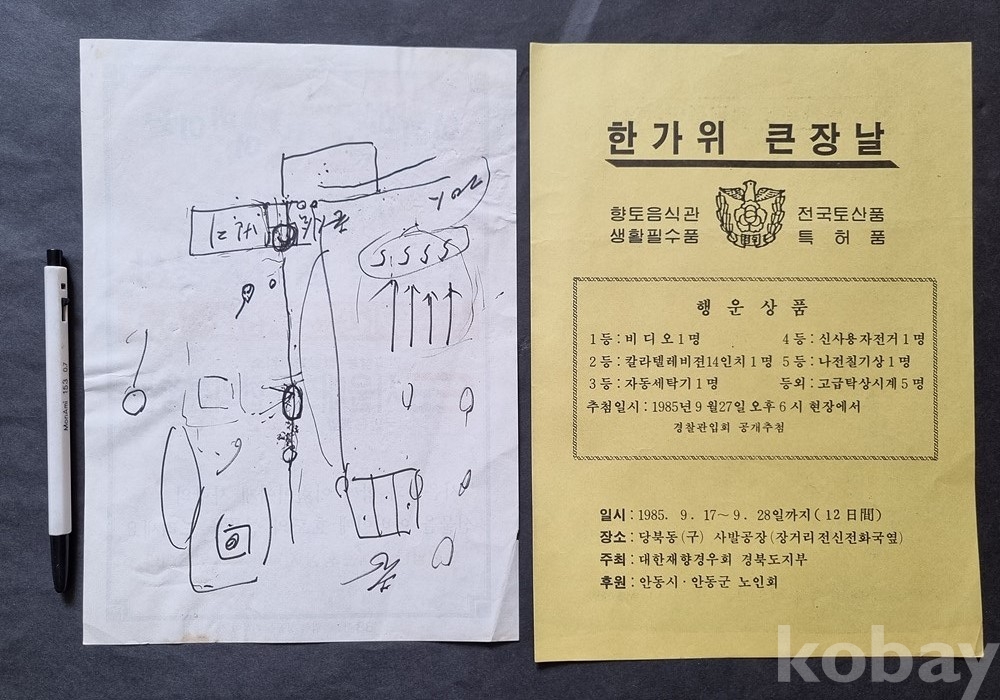 한가위 큰장날
향토음식관 전국토산품
생활필수품 특허품
행운상품
1등:비디오1명 4등:신사용자전거1명
2등:칼라텔레비젼14인치1명 5등:나전칠기상1명
3등:자동세탁기1명 등외:고급탁상시계5명
추첨일시:1985년9월27일오후6시현장에서
경찰관입회 공개추첨
일시:1985. 9. 17~9. 28일까지(12日間)
장소:당북동(구) 사발공장(장거리전신전화국옆)
주최:대한재향경우회 경북도지부
후원:안동시·안동군 노인회
MonAmi 153 0.7
kobay